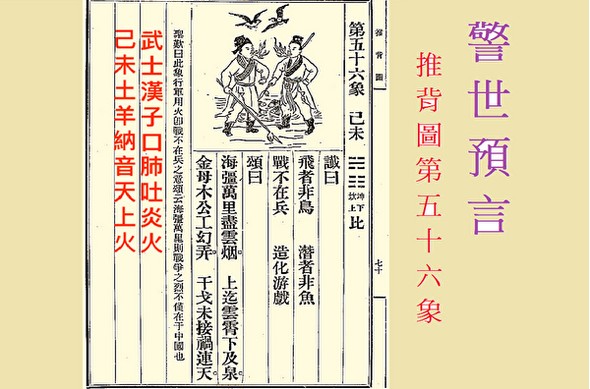 警世預言
推背圖第五十六象
推背圖
七十
第五十六象 己未
坤下坎上 比
讖曰
飛者非鳥 潛者非魚
戰不在兵 造化游戲
頌曰
海疆萬里盡雲烟 上迄雲霄下及泉
金母木公工幻弄 干戈未接禍連天
聖歎曰此象行軍用火即戰不在兵之意頌云海疆萬里則戰爭之烈不僅在于中國也
武士漢子口肺吐炎火
己未土羊納音天上火